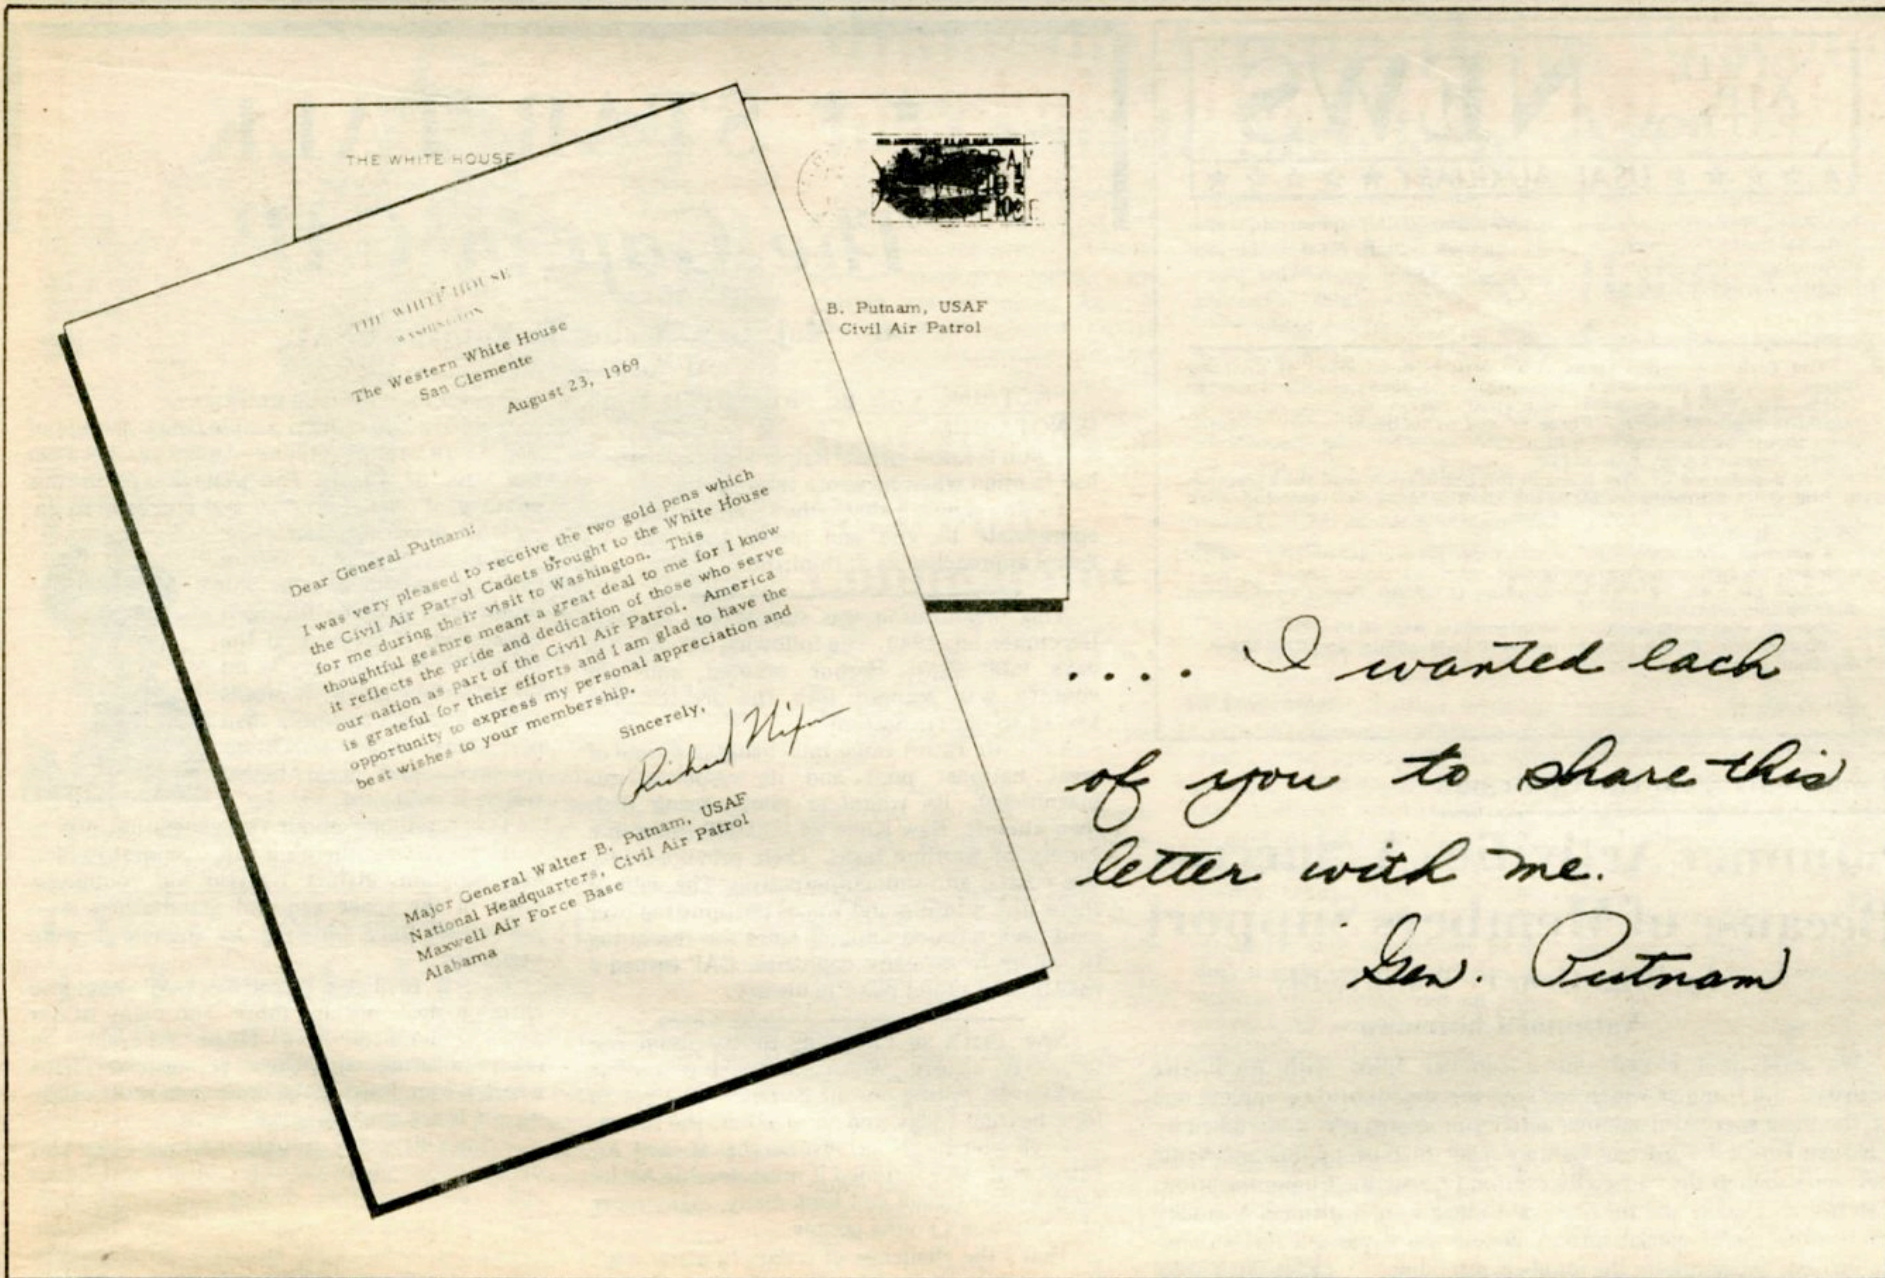 THE WHITE HOUSE
PRAY
10¢
B. Putnam, USAF
Civil Air Patrol
THE WHITE HOUSE
WASHINGTON
The Western White House
San Clemente
August 23, 1969
Dear General Putnam:
I was very pleased to receive the two gold pens which
the Civil Air Patrol Cadets brought to the White House
for me during their visit to Washington. This
thoughtful gesture meant a great deal to me for I know
it reflects the pride and dedication of those who serve
our nation as part of the Civil Air Patrol. America
is grateful for their efforts and I am glad to have the
opportunity to express my personal appreciation and
best wishes to your membership.
Sincerely,
Richard Nixon
Major General Walter B. Putnam, USAF
National Headquarters, Civil Air Patrol
Maxwell Air Force Base
Alabama
.... I wanted each
of you to share this
letter with me.
Gen. Putnam